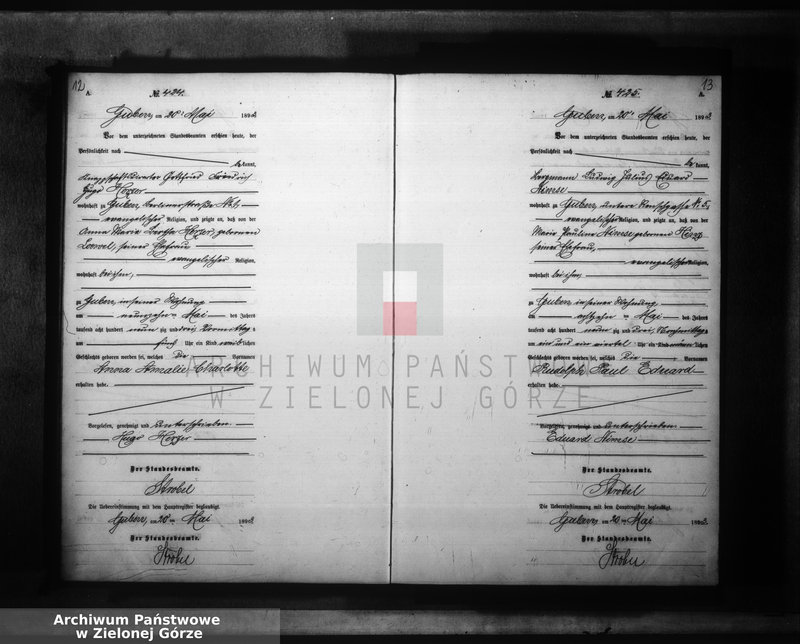 12
A.
№ 424.
Guben, am 20ten Mai 1893
Vor dem unterzeichneten Standesbeamten erschien heute, der
Persönlichkeit nach
kannt,
Gottfried Friedrich
Hugo
wohnhaft zu Guben, Berlinerstraße
evangelischer Religion, und zeigte an, daß von der
Anna Marie Bertha geborenen
seiner Ehefrau
evangelischer Religion,
wohnhaft bei ihm,
zu Guben, in seiner Wohnung
am neunzehnten Mai des Jahres
tausend acht hundert neunzig und drei, Vormittags
um fünf Uhr ein Kind weiblichen
Geschlechts geboren worden sei, welches die Vornamen
Anna Amalie Charlotte
erhalten habe.
Vorgelesen, genehmigt und unterschrieben
Hugo
Der Standesbeamte.
Strobel
Die Uebereinstimmung mit dem Hauptregister beglaubigt.
Guben, am 20ten Mai 1893
Der Standesbeamte.
Strobel
13
A.
№ 425.
Guben, am 20ten Mai 1893
Vor dem unterzeichneten Standesbeamten erschien heute, der
Persönlichkeit nach
kannt,
Bergmann Ludwig Julius Eduard
Niemse
wohnhaft zu Guben, Untere № 5,
evangelischer Religion, und zeigte an, daß von der
Marie Pauline Niemse geborenen
seiner Ehefrau,
evangelischer Religion,
wohnhaft bei ihm,
zu Guben in seiner Wohnung
am achtzehnten Mai des Jahres
tausend acht hundert neunzig und drei, Nachmittags
um ein und ein viertel Uhr ein Kind männlichen
Geschlechts geboren worden sei, welches die Vornamen
Rudolph Paul Eduard
erhalten habe.
Vorgelesen, genehmigt und unterschrieben
Eduard Niemse
Der Standesbeamte.
Strobel
Die Uebereinstimmung mit dem Hauptregister beglaubigt.
Guben, am 20ten Mai 1893
Der Standesbeamte.
Strobel
ARCHIWUM PAŃSTWOWE
W ZIELONEJ GÓRZE
Archiwum Państwowe
w Zielonej Górze